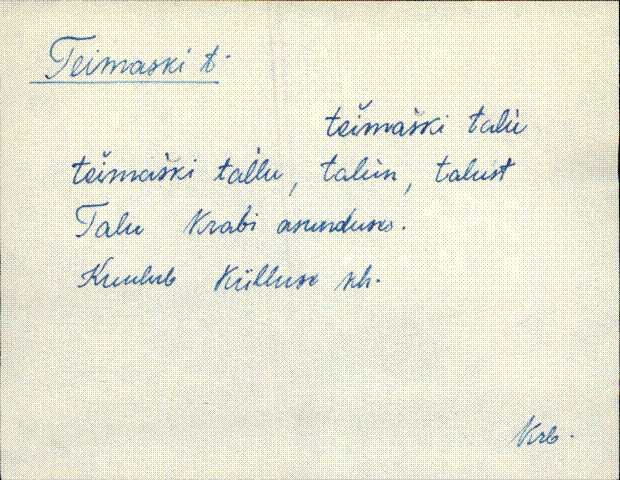 Teimaski t.
teimaski talu
teimaski tallu, talun, talust
Talu Krabi asunduses.
Kuulub Külluse kh.
Krb.